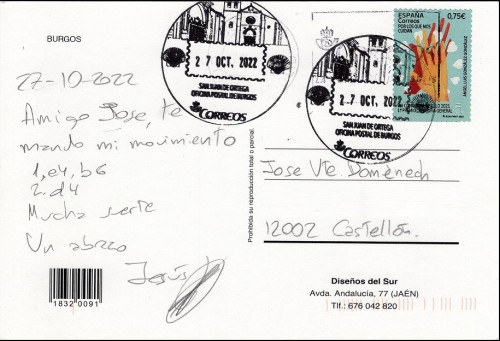 BURGOS
27-10-2022
Amigo Jose, te
mando mi movimiento
1, e4, b6
2. d4
Mucha suerte
Un abrazo
Jesús
18320091
Prohibida su reproducción total o parcial.
27 OCT. 2022
SAN JUAN DE ORTEGA
OFICINA POSTAL DE BURGOS
CORREOS
27 OCT. 2022
SAN JUAN DE ORTEGA
OFICINA POSTAL DE BURGOS
CORREOS
ESPAÑA 0,75€
Correos
POR LOS QUE NOS
CUIDAN
Jose Vte Domènech
12002 Castellón.
Diseños del Sur
Avda. Andalucía, 77 (JAÉN)
Tlf.: 676 042 820